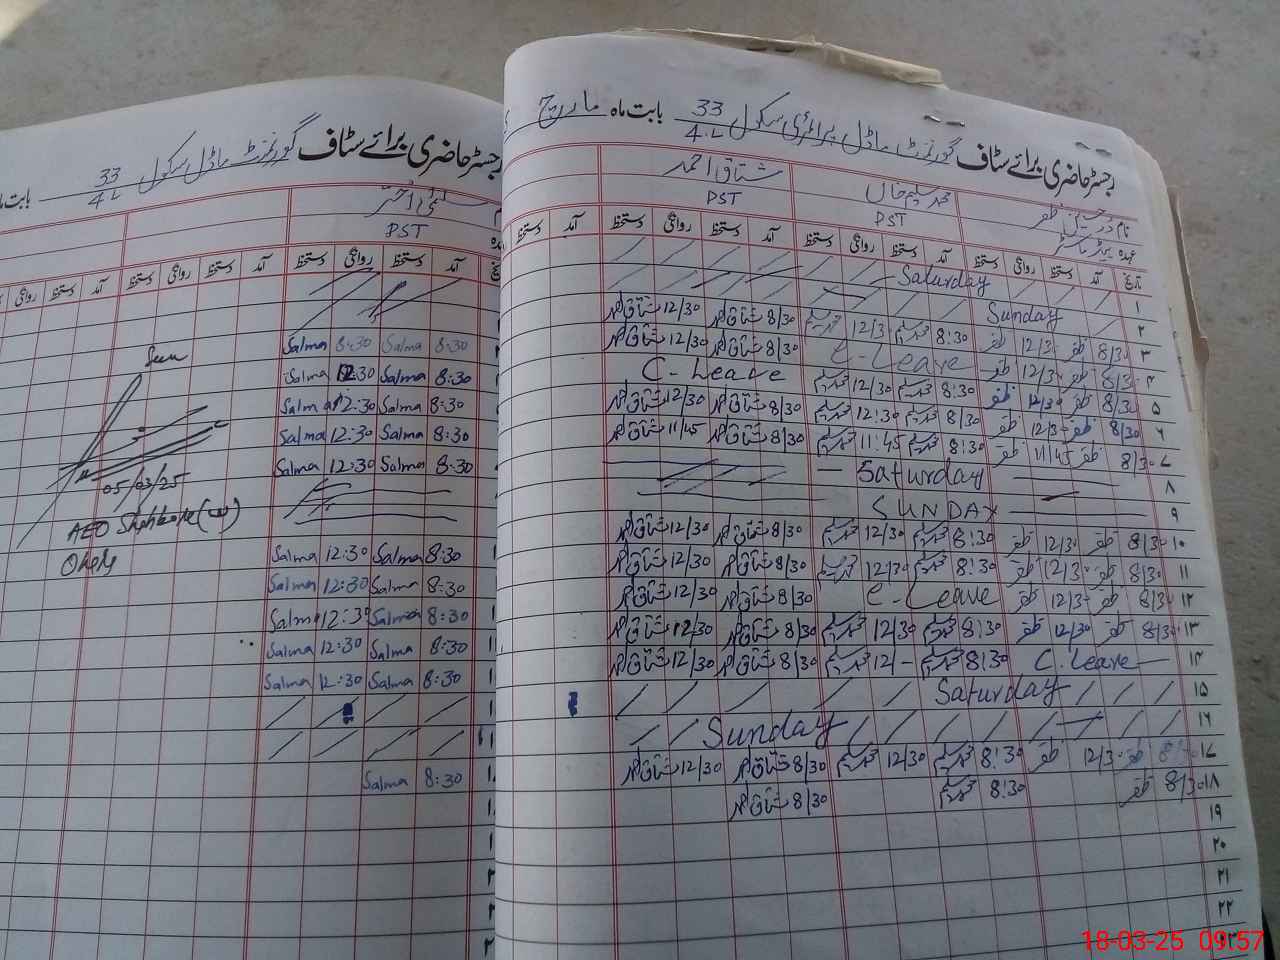 رجسٹر حاضری برائے سٹاف گورنمنٹ ماڈل پرائمری سکول 33/4L بابت ماہ مارچ
نام ظفر محمد سلیم خاں مشتاق احمد
عہدہ ہیڈ ماسٹر PST PST
تاریخ آمد دستخط روانگی دستخط آمد دستخط روانگی دستخط آمد دستخط روانگی دستخط آمد دستخط
۱ Saturday
۲ Sunday
۳ 8/30 ظفر 12/30 ظفر 8:30 محمد سلیم 12/30 محمد سلیم 8/30 مشتاق احمد 12/30 مشتاق احمد
۴ 8/30 ظفر 12/30 ظفر C-Leave 8/30 مشتاق احمد 12/30 مشتاق احمد
۵ 8/30 ظفر 12/30 ظفر 8:30 محمد سلیم 12/30 محمد سلیم C-Leave
۶ 8/30 ظفر 12/30 ظفر 8/30 محمد سلیم 12:30 محمد سلیم 8/30 مشتاق احمد 12/30 مشتاق احمد
۷ 8/30 ظفر 11/45 ظفر 8:30 محمد سلیم 11:45 محمد سلیم 8/30 مشتاق احمد 11/45 مشتاق احمد
۸ Saturday
۹ SUNDAY
۱۰ 8/30 ظفر 12/30 ظفر 8:30 محمد سلیم 12/30 محمد سلیم 8/30 مشتاق احمد 12/30 مشتاق احمد
۱۱ 8/30 ظفر 12/30 ظفر 8:30 محمد سلیم 12/30 محمد سلیم 8/30 مشتاق احمد 12/30 مشتاق احمد
۱۲ 8/30 ظفر 12/30 ظفر C-Leave 8/30 مشتاق احمد 12/30 مشتاق احمد
۱۳ 8/30 ظفر 12/30 ظفر 8:30 محمد سلیم 12/30 محمد سلیم 8/30 مشتاق احمد 12/30 مشتاق احمد
۱۴ C. Leave 8/30 محمد سلیم 12 محمد سلیم 8/30 مشتاق احمد 12/30 مشتاق احمد
۱۵ Saturday
۱۶ Sunday
۱۷ 8/30 ظفر 12/30 ظفر 8:30 محمد سلیم 12/30 محمد سلیم 8/30 مشتاق احمد 12/30 مشتاق احمد
۱۸ 8/30 ظفر 8:30 محمد سلیم 8/30 مشتاق احمد
۱۹
۲۰
۲۱
۲۲
رجسٹر حاضری برائے سٹاف گورنمنٹ ماڈل سکول 33/4L بابت ماہ
سلمیٰ اختر
PST
آمد دستخط روانگی دستخط آمد دستخط روانگی دستخط آمد دستخط روانگی
8:30 Salma 8:30 Salma
8:30 Salma 12:30 Salma
8:30 Salma 12:30 Salma
8:30 Salma 12:30 Salma
8:30 Salma 12:30 Salma
8:30 Salma 12:30 Salma
8:30 Salma 12:30 Salma
8:30 Salma 12:30 Salma
8:30 Salma 12:30 Salma
8:30 Salma 12:30 Salma
8:30 Salma
05/03/25
AEO
18-03-25 09:57